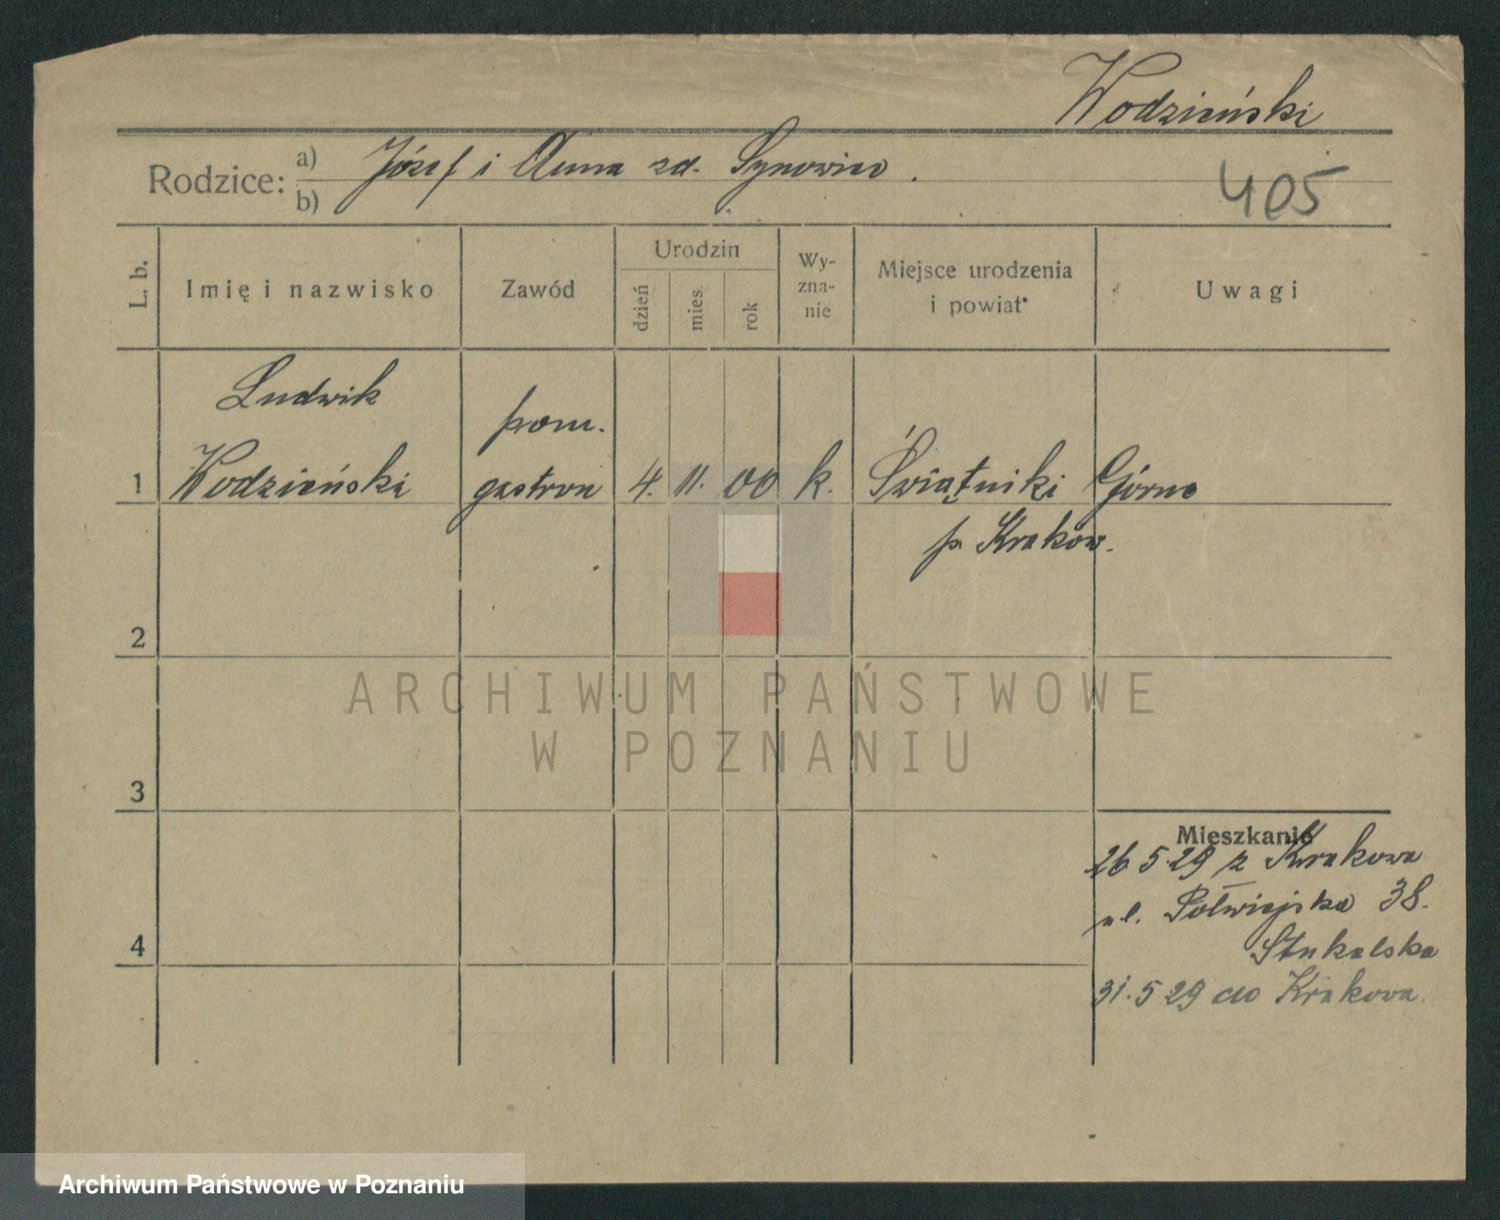 Wodzieński
Rodzice: a) Józef i Anna zd. Synowiec.
b)
405
L. b.
Imię i nazwisko
Zawód
Urodzin
dzień
mies.
rok
Wy-
zna-
nie
Miejsce urodzenia
i powiat
Uwagi
Ludwik
pom.
1 Wodzieński gastron 4. 11. 00 k. Świątniki Górne
p. Kraków.
2
3
4
Mieszkanie
26 5 29 z Krakowa
ul. Półwiejska 38.
Stukalska
31. 5 29 do Krakowa.
ARCHIWUM PAŃSTWOWE
W POZNANIU
Archiwum Państwowe w Poznaniu